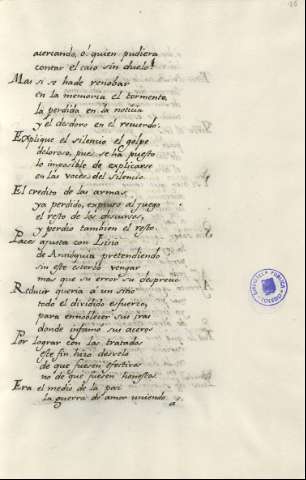 acercando, ó quien pudiera
contar el caso sin duelo!
Mas si se ha de renobar
en la memoria el tormento,
la perdida en la noticia
y el desdoro en el recuerdo:
Explique el silencio el golpe
doloroso, pues se ha puesto
lo imposible de explicarse
en las voces del silencio.
El credito de las armas,
ya perdido, expuso al juego
el resto de los discursos,
y perdio tambien el resto.
Paces ajusta con Lisio
de Antioquia pretendiendo
sin este estorbo vengar
mas que su error su desprecio
Reducir queria á un sitio
todo el dividido esfuerzo,
para ennoblecer sus iras
donde infamó sus aceros
Por lograr con los tratados
este fin hizo desvelo
de que fuesen efectivos
no de que fuesen honestos.
Era el medio de la paz
la guerra de amor uniendo